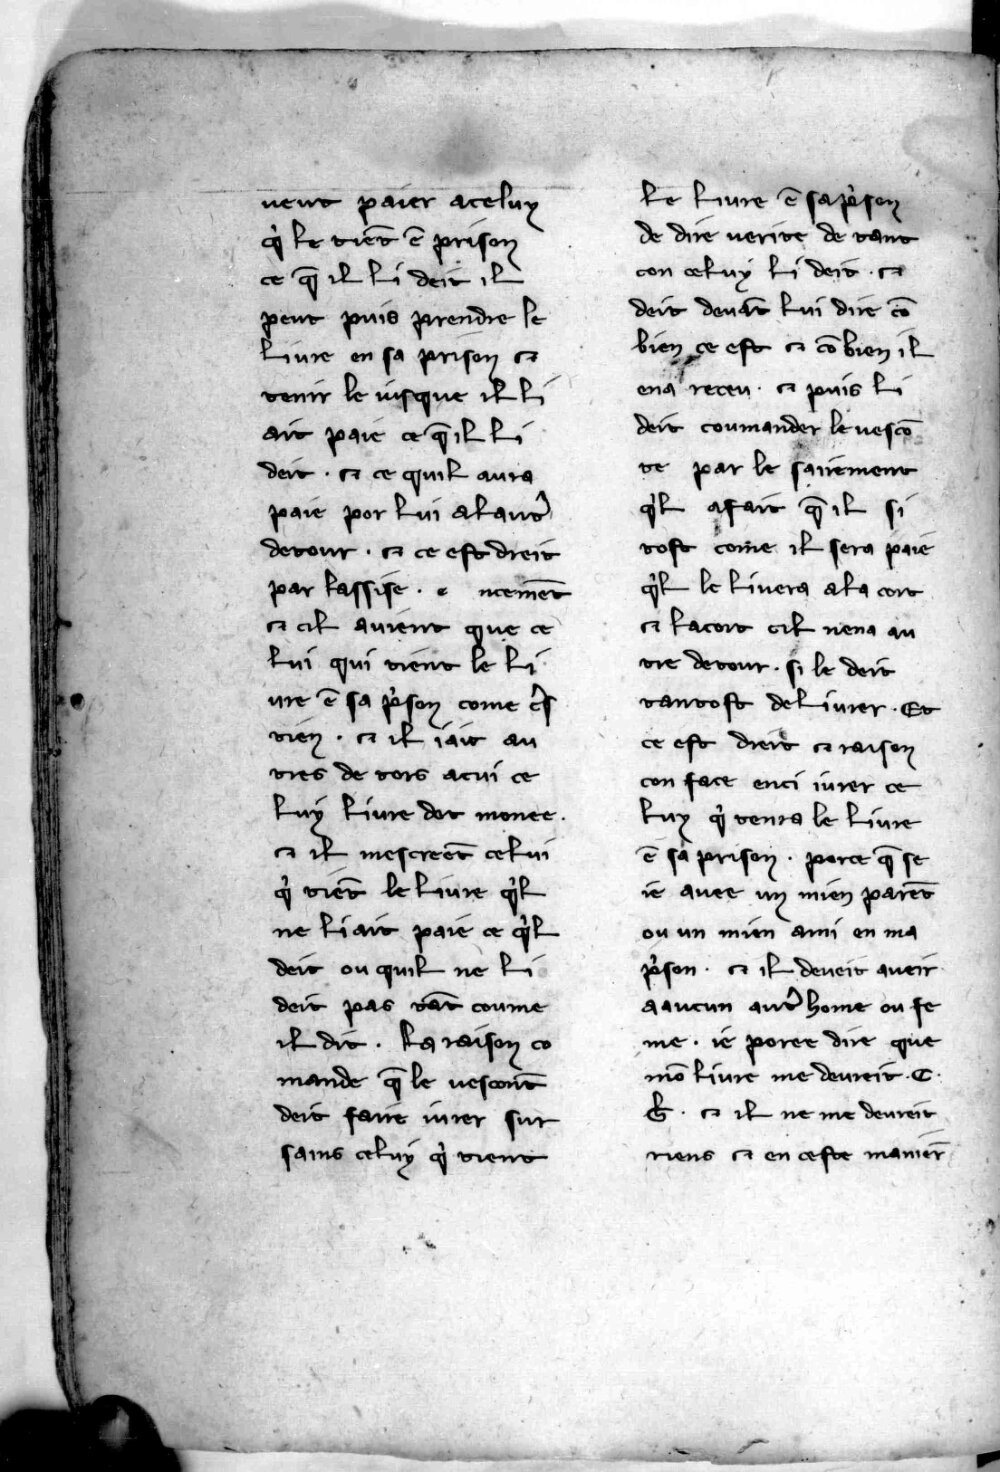 veut paier aceluy
q̇ le tiēt ē prison
ce q̄ il li deit il
peut puis prendre le
livre en sa prison ⁊
tenir le iusque il li
ait paie ce q̄ il li
deit · ⁊ ce quil aura
paie por lui alautˀ
detour · ⁊ ce est dreit
par lassise · e ncemēt
⁊ cil avient que ce
lui qui tient le li
vre ē sa pˀson come cˀs
tien · ⁊ il iait au
tres detors acui ce
luy livre dot monee ·
⁊ il mescreēt celui
q̇ tiēt le livre q̇l
ne li ait paie ce q̇l
deit ou quil ne li
deit pas tāt coume
il dit · La raison co
mande q̄ le vescont̄
deit faire iurer sur
sains celuy q̇ tient
le livre ē sa pˀson
de dire verite de tant
con celuy li deit · ⁊
deit devāt lui dire cō
bien ce est ⁊ cōbien il
ena receu · ⁊ puis li
deit coumander le vescō
te par le sairement
q̇l a fait q̄ il si
tost come il sera paie
q̇l le livera a la cort
⁊ la cort cil nena au
tre detour · si le deit
tantost delivrer · Et
ce est dreit ⁊ raison
con face enci iurer ce
luy q̇ tenra le livre
ē sa prison · porce q̄ se
ie avee un mien parēt
ou un mien ami en ma
pˀson · ⁊ il deveit aveir
a aucun autˀ home ou fe
me · ie poree dire que
mō livre me devreit · C ·
ƀ · ⁊ il ne me devreit
riens ⁊ en ceste manierˀ